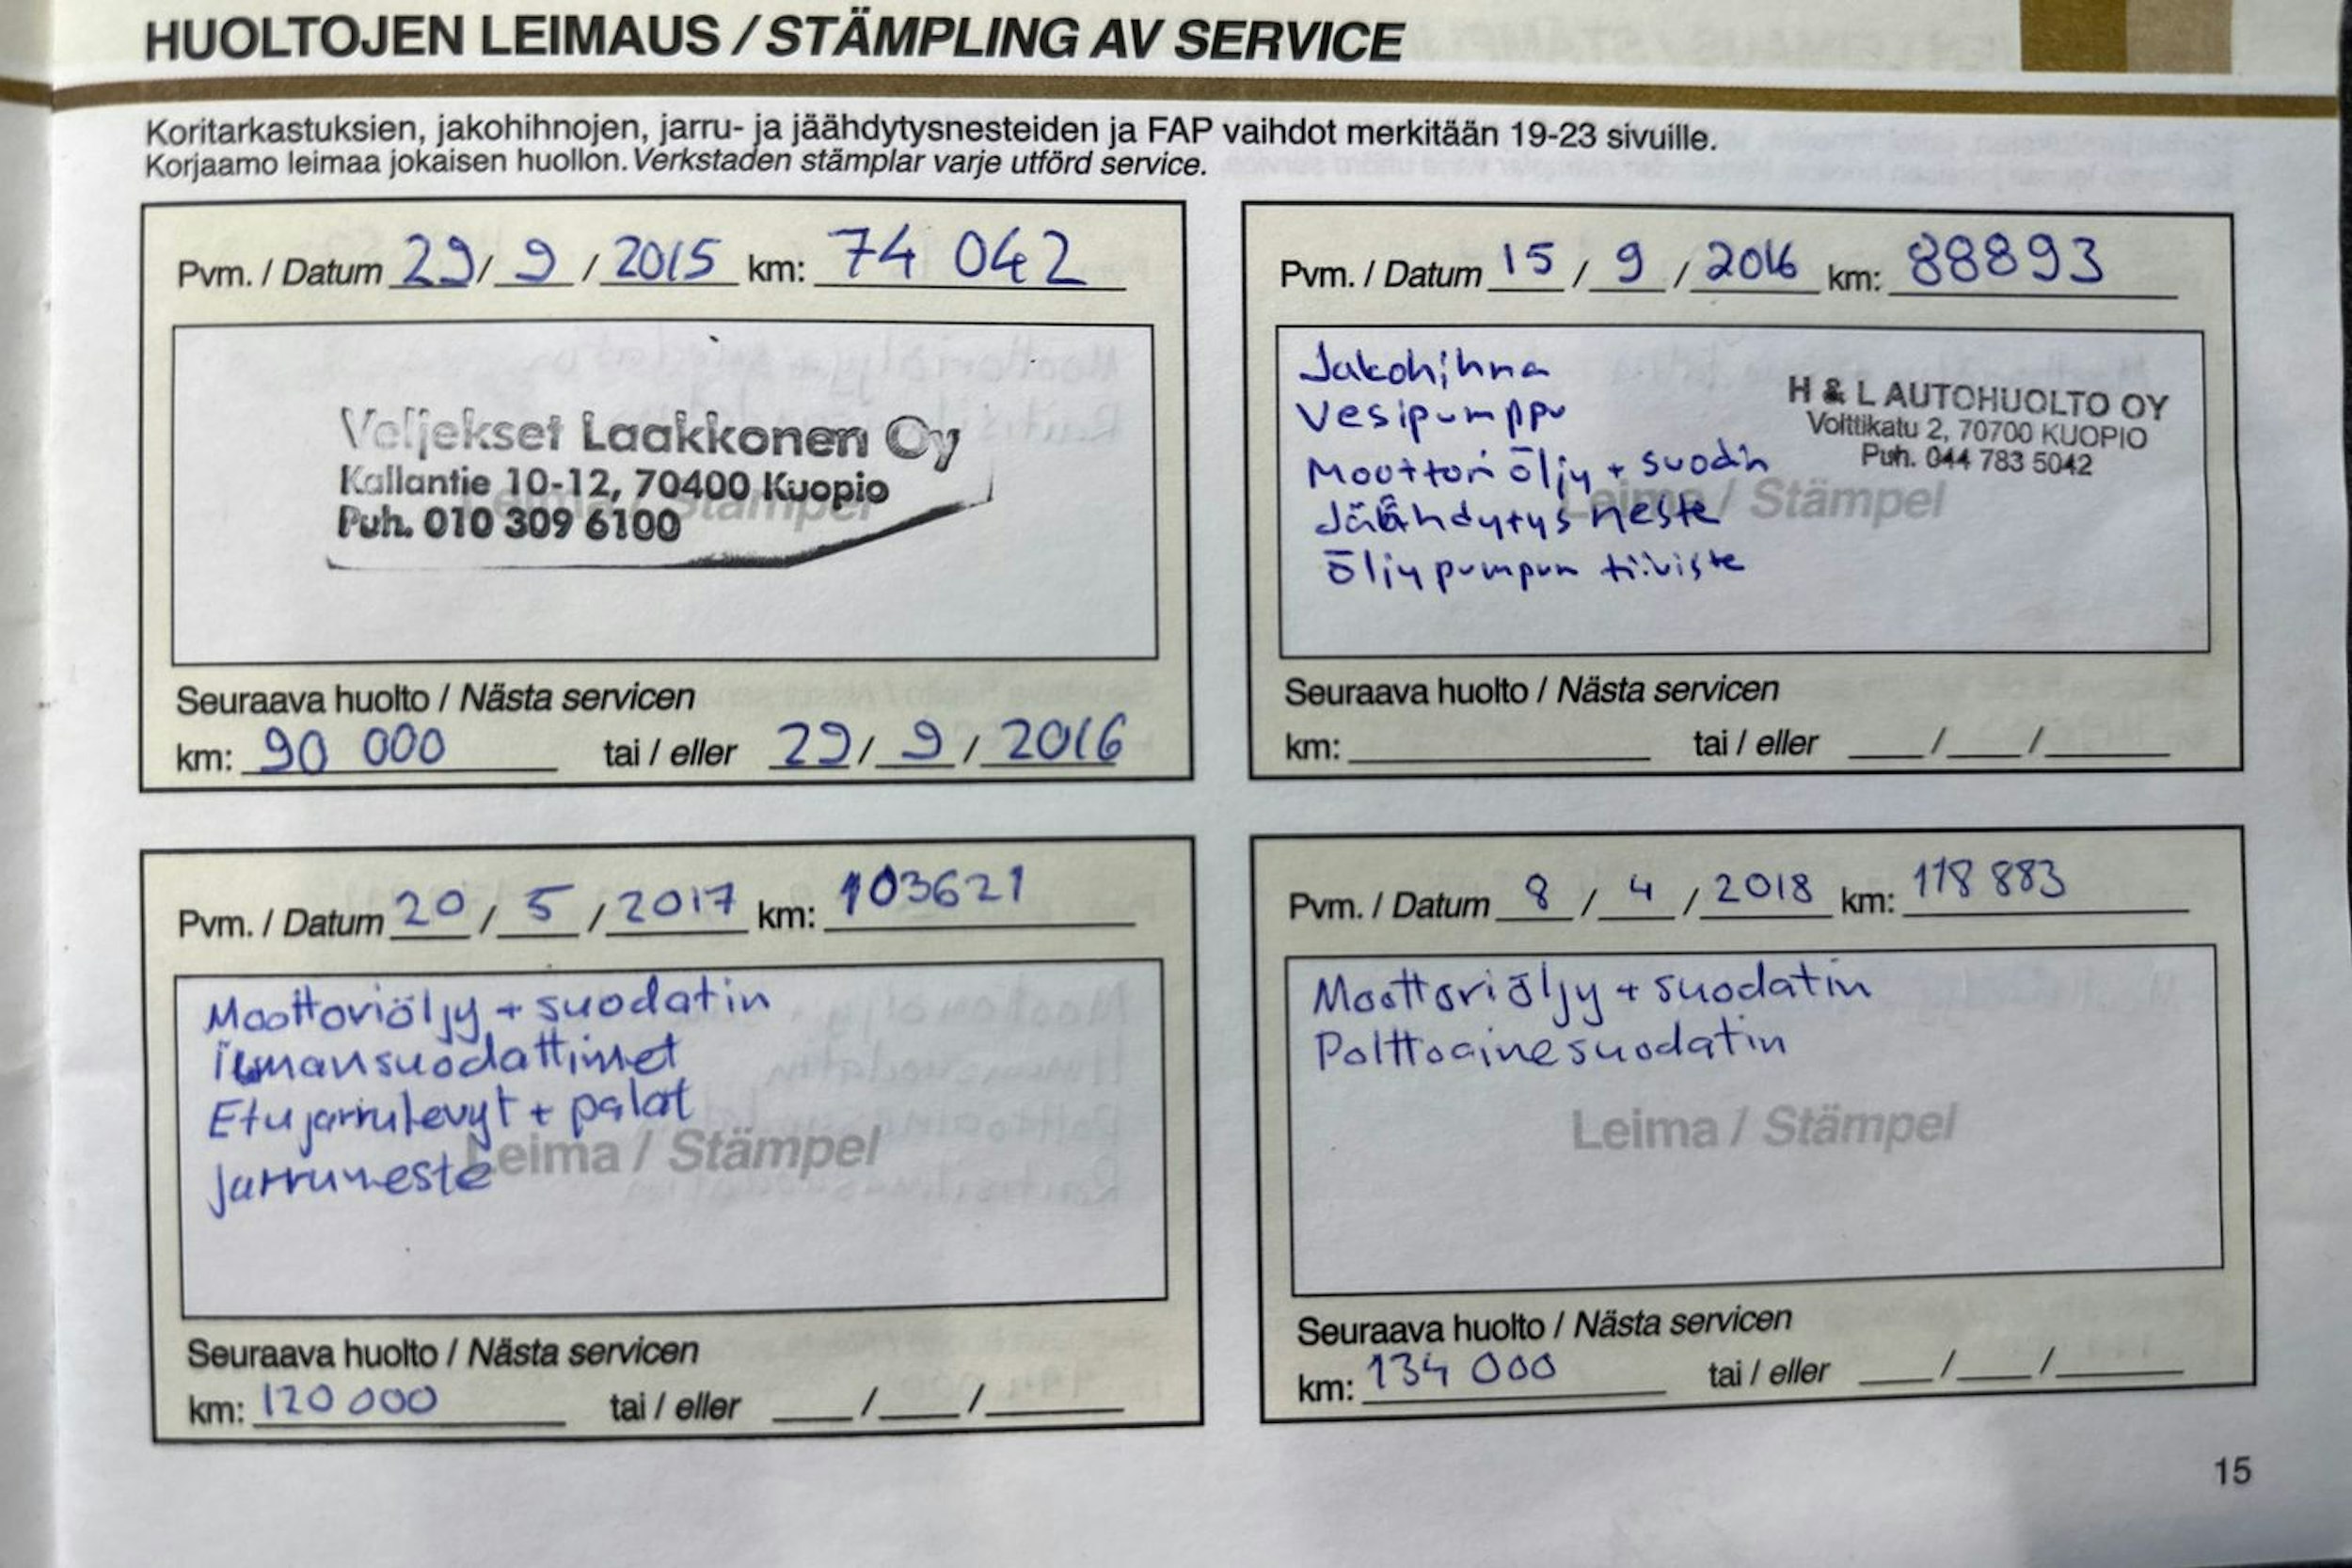 HUOLTOJEN LEIMAUS / STÄMPLING AV SERVICE
Koritarkastuksien, jakohihnojen, jarru- ja jäähdytysnesteiden ja FAP vaihdot merkitään 19-23 sivuille.
Korjaamo leimaa jokaisen huollon. Verkstaden stämplar varje utförd service.
Pvm. / Datum 29/ 9 / 2015 km: 74 042
Veljekset Laakkonen Oy
Kallantie 10-12, 70400 Kuopio
Puh. 010 309 6100
Leima / Stämpel
Seuraava huolto / Nästa servicen
km: 90 000 tai / eller 29/ 9 / 2016
Pvm. / Datum 15 / 9 / 2016 km: 88893
Jakohihna
Vesipumppu
Moottoriöljy + suodin
Jäähdytysneste
Öljypumpun tiiviste
H & L AUTOHUOLTO OY
Volttikatu 2, 70700 KUOPIO
Puh. 044 783 5042
Leima / Stämpel
Seuraava huolto / Nästa servicen
km: tai / eller / /
Pvm. / Datum 20 / 5 / 2017 km: 103621
Moottoriöljy + suodatin
ilmansuodattimet
Etujarrulevyt + palat
jarruneste
Leima / Stämpel
Seuraava huolto / Nästa servicen
km: 120 000 tai / eller / /
Pvm. / Datum 8 / 4 / 2018 km: 118 883
Moottoriöljy + suodatin
Polttoainesuodatin
Leima / Stämpel
Seuraava huolto / Nästa servicen
km: 134 000 tai / eller / /
15